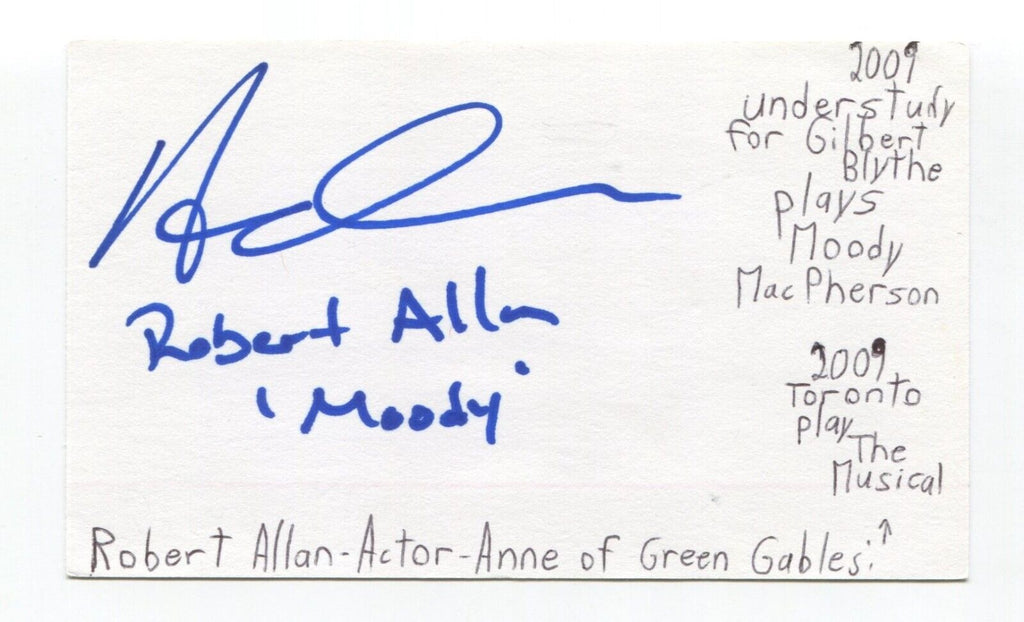 2009
understudy
for Gilbert
Blythe
plays
Moody
MacPherson
Robert Allan
'Moody'
2009
Toronto
play
The
Musical
Robert Allan-Actor-Anne of Green Gables: ↑